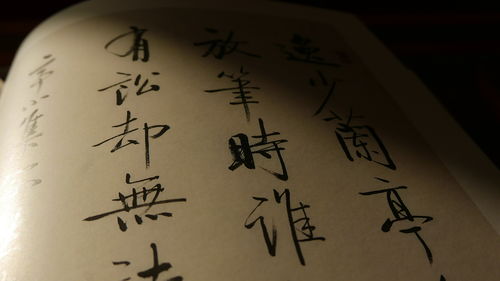 逸少蘭亭
放筆時誰
有訟却無